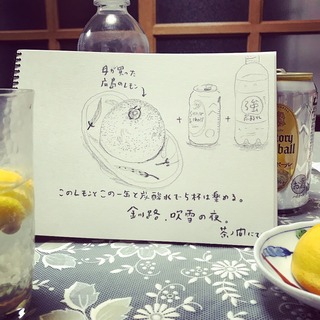 母が買った
広島のレモン
強
炭酸水
このレモンとこの一缶と炭酸水で5杯は飲める。
釧路、吹雪の夜。
茶ノ間にて